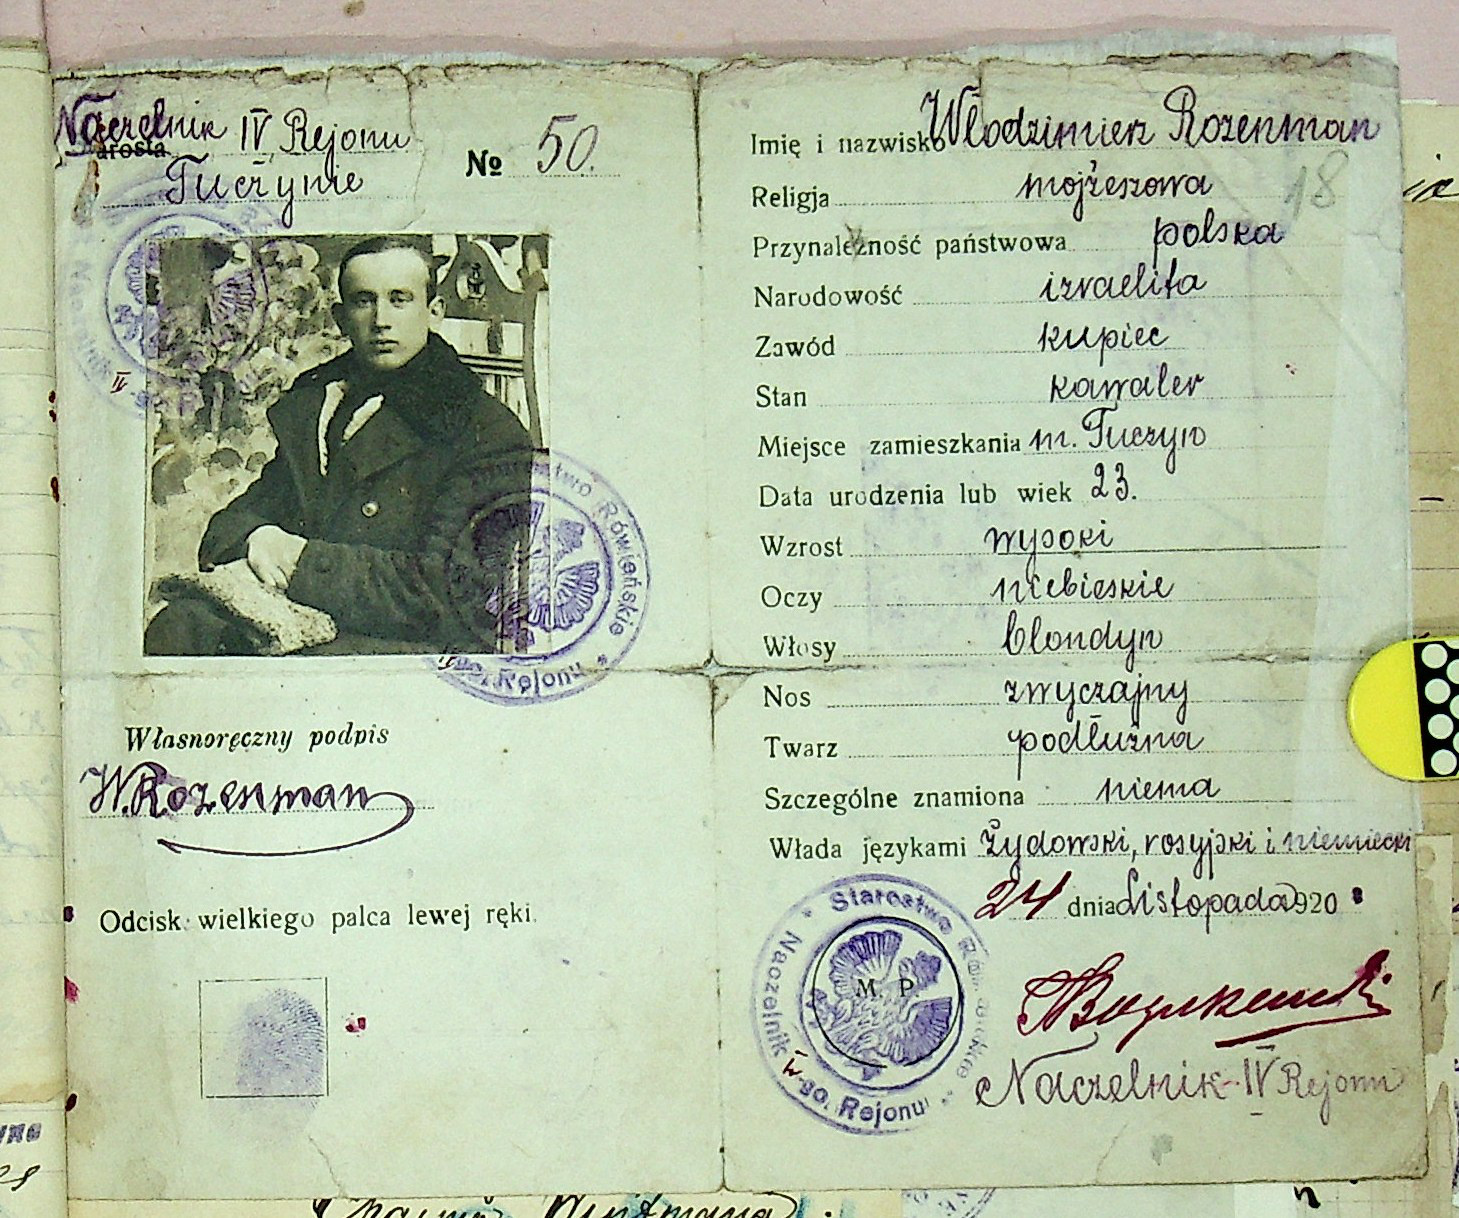 Naczelnik IV Rejonu
arosta
Tuczynie
№ 50.
Własnoręczny podpis
W. Rozenman
Odcisk wielkiego palca lewej ręki
Starostwo Rówieńskie
IV-go. Rejonu
Imię i nazwisko Włodzimierz Rozenman
18
Religja mojżeszowa
Przynależność państwowa polska
Narodowość izraelita
Zawód kupiec
Stan kawaler
Miejsce zamieszkania m. Tuczyn
Data urodzenia lub wiek 23.
Wzrost wysoki
Oczy niebieskie
Włosy blondyn
Nos zwyczajny
Twarz podłużna
Szczególne znamiona niema
Włada językami żydowski, rosyjski i niemiecki
24 dnia Listopada 920
M. P.
Starostwo
Naczelnik IV-go. Rejonu
Naczelnik IV Rejonu